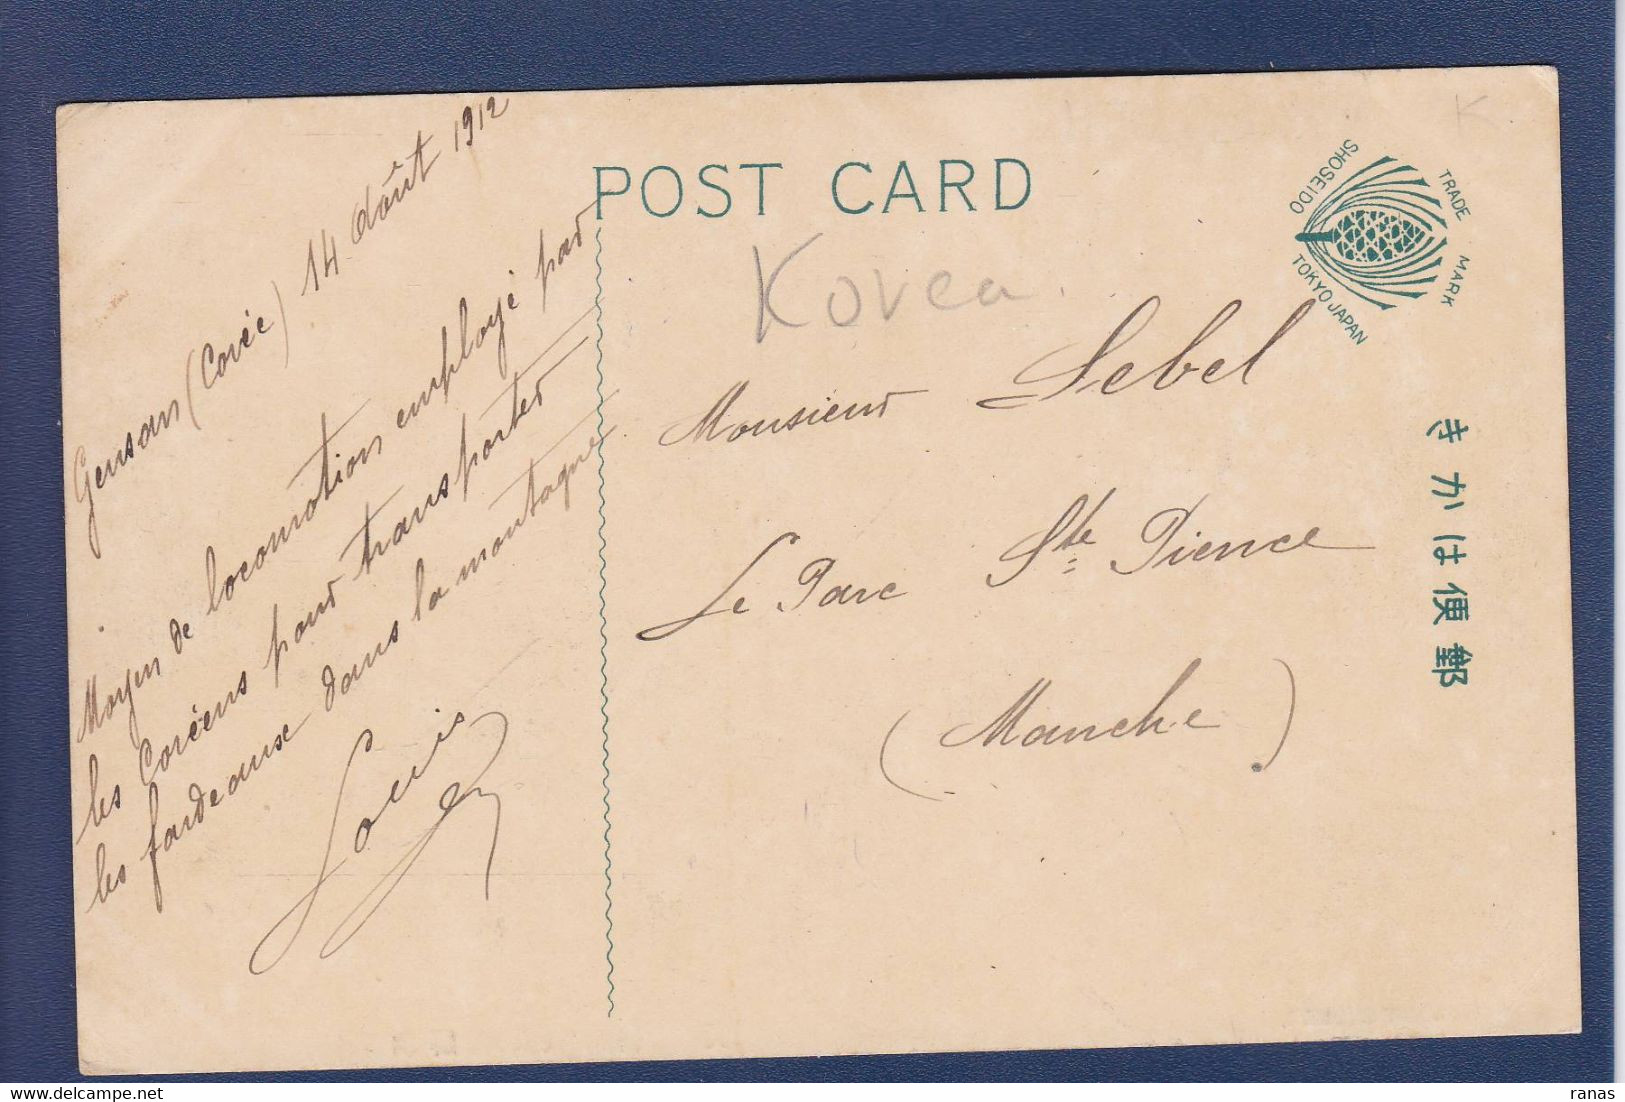 POST CARD
SHOSEIDO
TOKYO JAPAN
TRADE MARK
きかは便郵
Korea.
K
Gensan (Corée) 14 Août 1912
Moyen de locomotion employé par
les Coréens pour transporter
les fardeaux dans la montagne
Louis
Monsieur Lebel
Le Parc Ste Pience
(Manche)
ranas